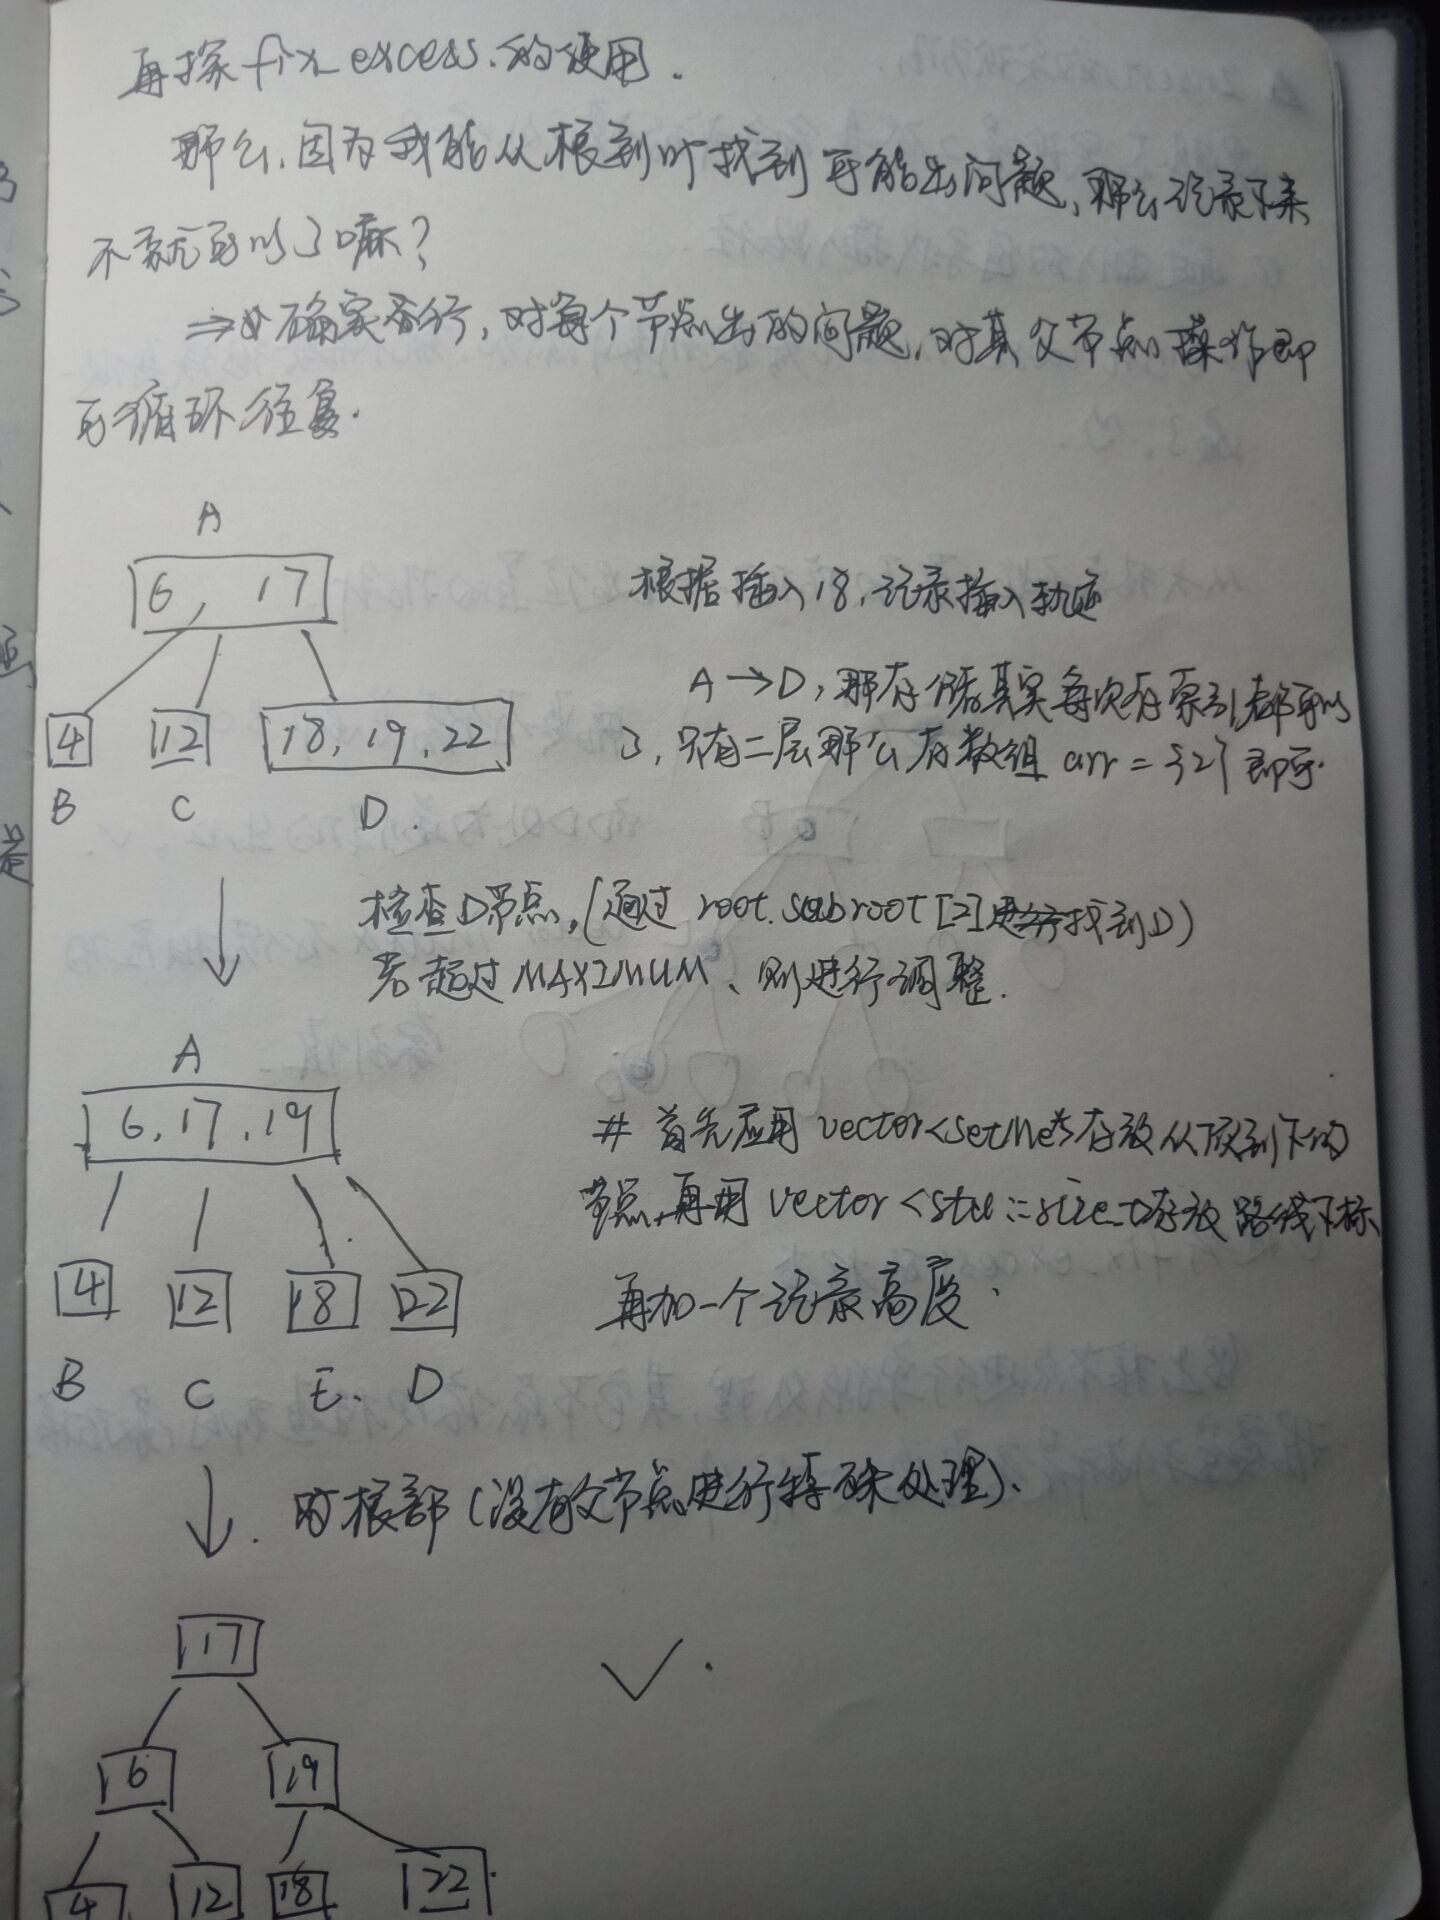 再探 fix_excess 的使用.
那么,因为我能从根到叶找到可能出问题,那么记录下来
不就可以了嘛?
⇒ 确实可行,对每个节点出的问题,对其父节点操作即
可循环往复.
A
6, 17
根据插入18,记录插入轨迹
A→D,那存储其实每次存索引都可以
了,只有二层那么存数组 arr = {2} 即可.
4 12 18, 19, 22
B C D.
检查D节点,(通过 root.subroot[2] 找到D)
若超过MAXIMUM、则进行调整.
A
6, 17, 19
# 首先应用 vector<set*>存放从顶到下的
节点,再用 vector<std::size_t>存放路线下标
再加一个记录高度.
4 12 18 22
B C E. D
对根部(没有父节点进行特殊处理).
17
6 19
4 12 18 22